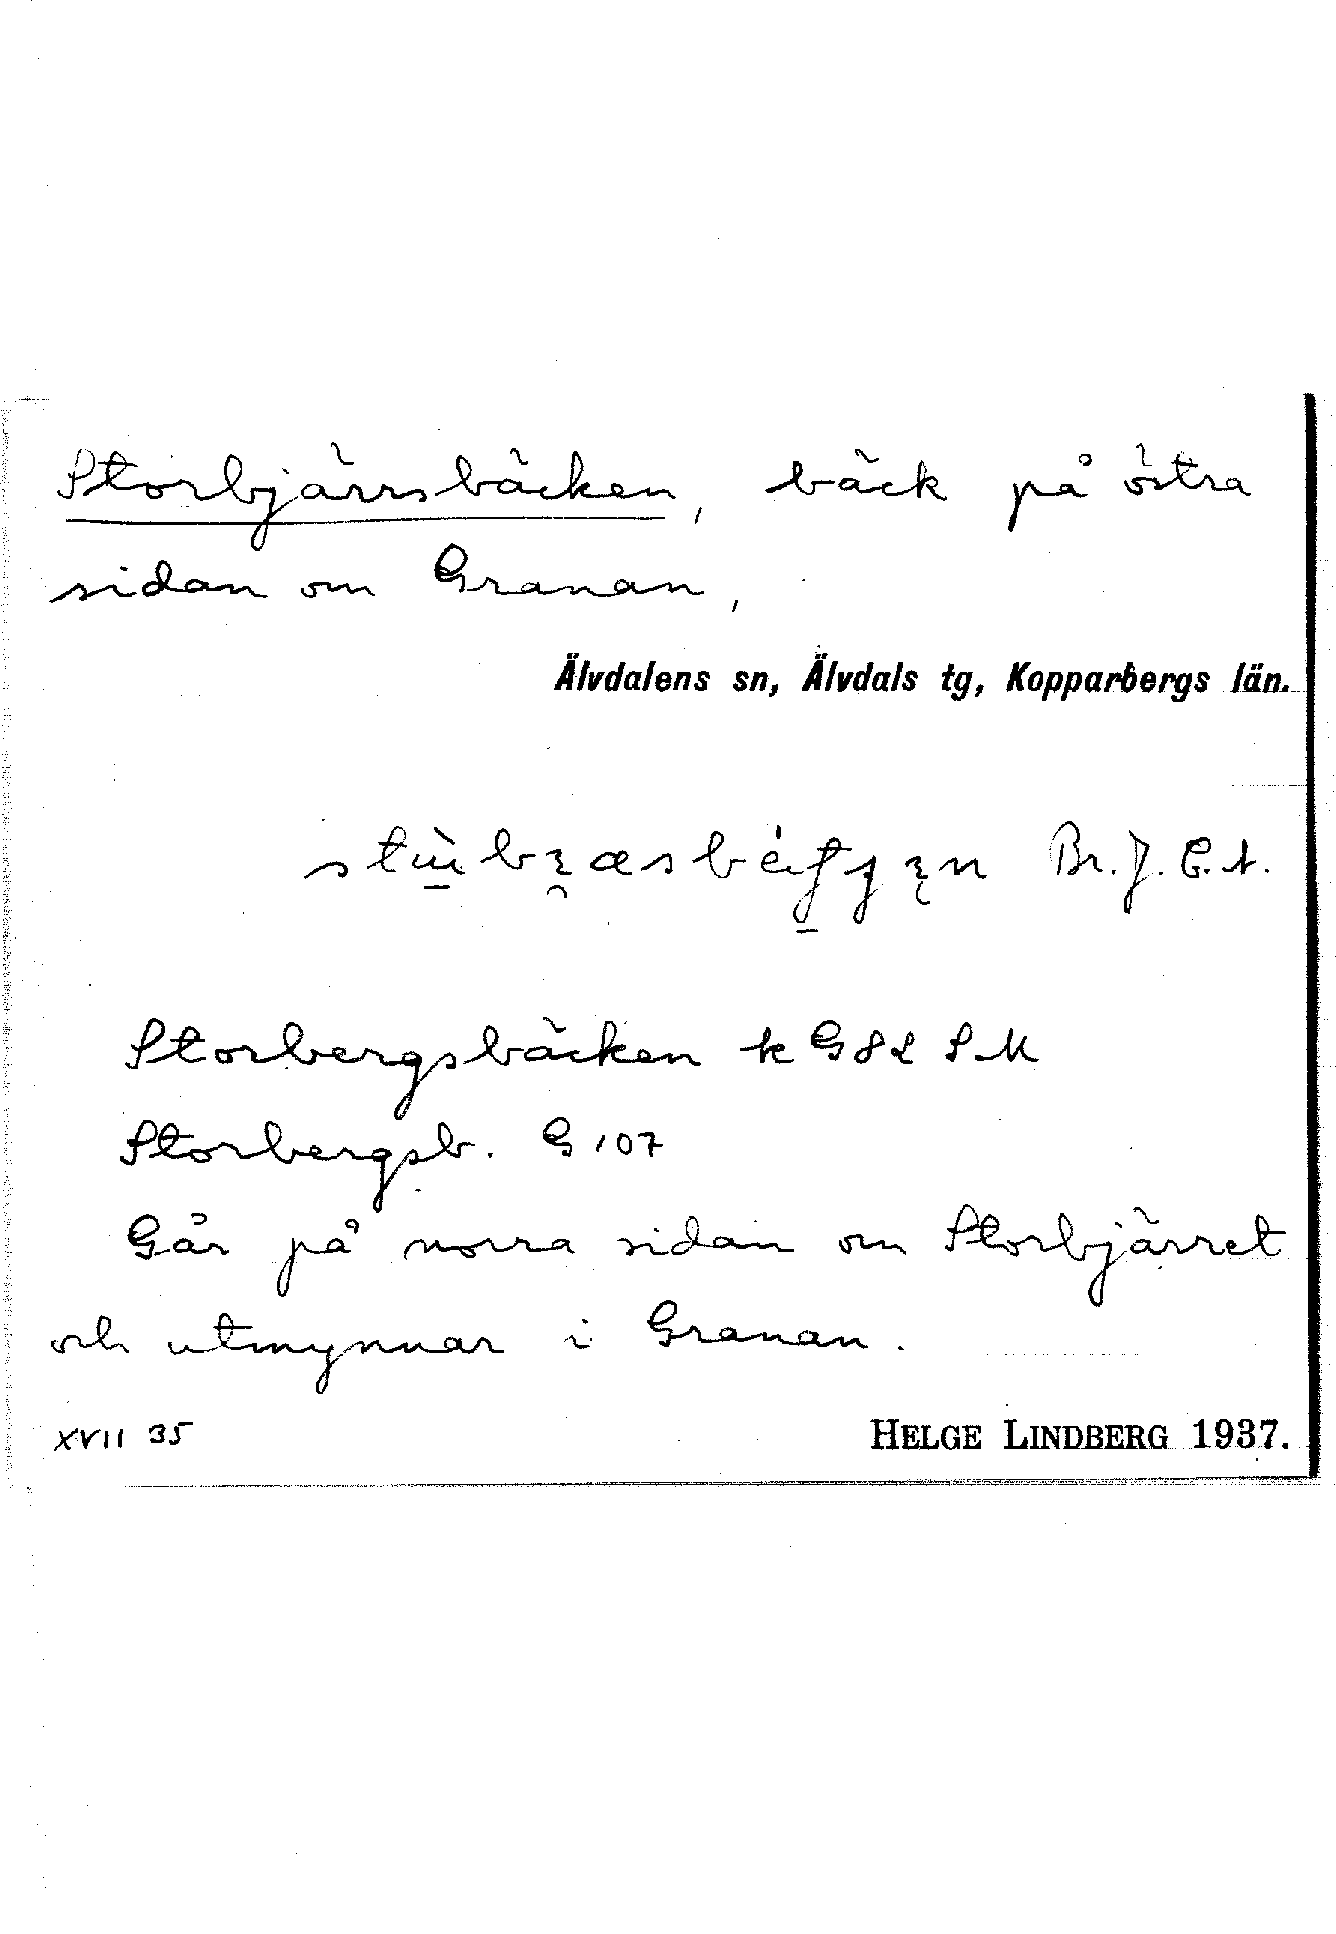 Storbjärrsbäcken, bäck på östra
sidan om Granan,
Älvdalens sn, Älvdals tg, Kopparbergs län.
Br. J. E. A.
Storbergsbäcken k G82 SM
Storbergsb. G 107
Går på norra sidan om Storbjärret
och utmynnar i Granan.
XVII 35
HELGE LINDBERG 1937.